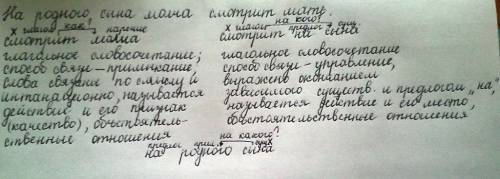 На родного сына молча смотрит мать.
х глагол как? наречие
смотрит молча
глагольное словосочетание;
способ связи – примыкание,
слова связаны по смыслу и
интонационно, называется
действие и его признак
(качество), обстоятель-
ственные отношения
на кого?
х глагол предлог сущ.
смотрит на сына
глагольное словосочетание
способ связи – управление,
выражено окончанием
зависимого существ. и предлогом „на",
называется действие и его место,
обстоятельственные отношения
на какого?
предлог прил. сущ х
на родного сына